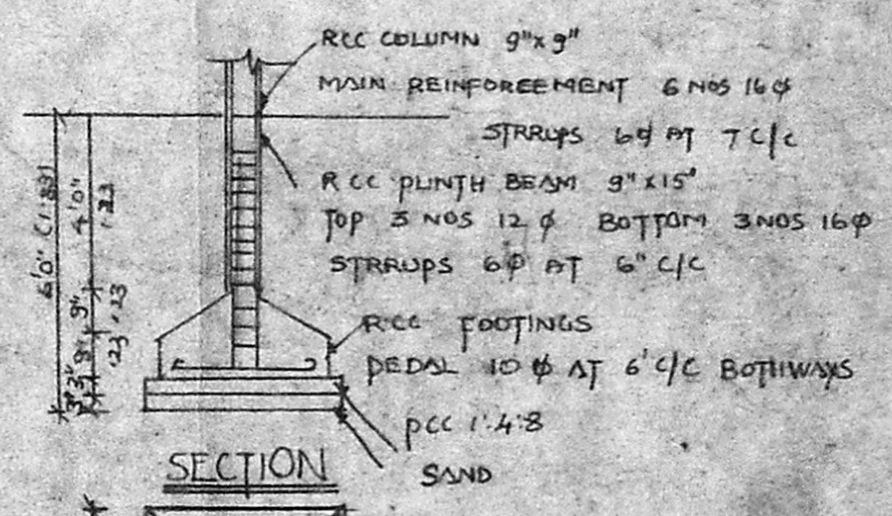 RCC COLUMN 9"x9"
MAIN REINFORCEMENT 6 NOS 16 φ
STRRUPS 6φ AT 7 C/C
RCC PLINTH BEAM 9"x15"
TOP 3 NOS 12 φ BOTTOM 3 NOS 16 φ
STRRUPS 6φ AT 6" C/C
RCC FOOTINGS
PEDAL 10 φ AT 6' C/C BOTHWAYS
PCC 1:4:8
SAND
SECTION
6'0" (1.83)
4'0"
1.22
9"
.23
9"
.23
3"
3"